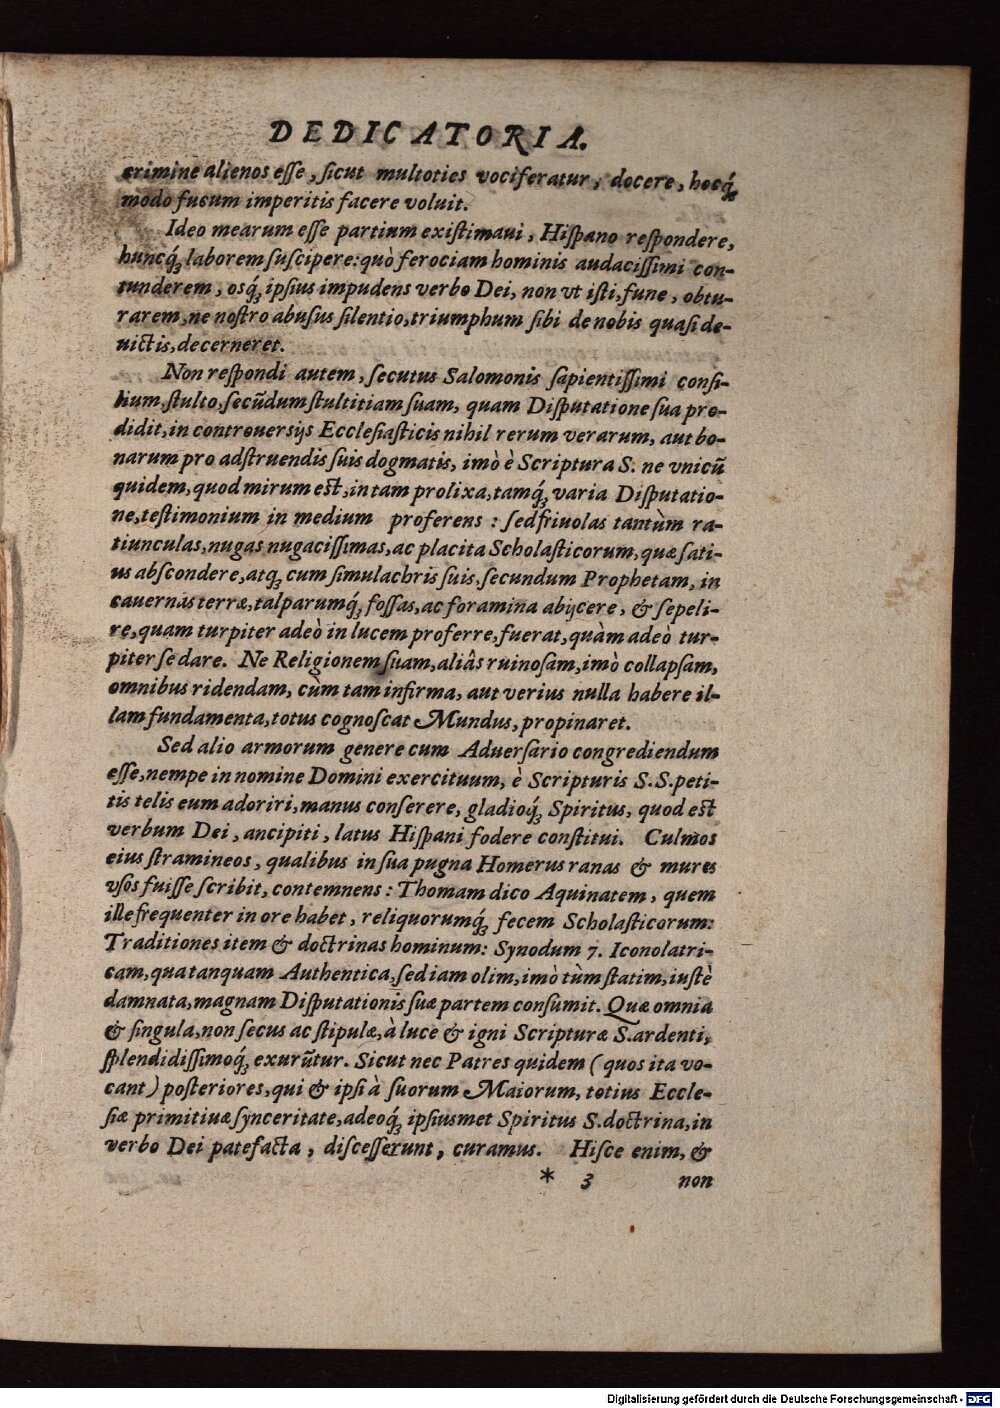 DEDICATORIA.
crimine alienos esse, sicut multoties vociferatur, docere, hocq́;
modo fucum imperitis facere voluit.
Ideo mearum esse partium existimaui, Hispano respondere,
huncq́; laborem suscipere: quò ferociam hominis audacissimi con-
tunderem, osq́; ipsius impudens verbo Dei, non vt isti, fune, obtu-
rarem, ne nostro abusus silentio, triumphum sibi de nobis quasi de-
uictis, decerneret.
Non respondi autem, secutus Salomonis sapientissimi consi-
lium, stulto, secũdum stultitiam suam, quam Disputatione sua pro-
didit, in controuersijs Ecclesiasticis nihil rerum verarum, aut bo-
narum pro adstruendis suis dogmatis, imò è Scriptura S. ne vnicũ
quidem, quod mirum est, in tam prolixa, tamq́; varia Disputatio-
ne, testimonium in medium proferens: sed friuolas tantùm ra-
tiunculas, nugas nugacissimas, ac placita Scholasticorum, quæ sati-
us abscondere, atq; cum simulachris suis, secundum Prophetam, in
cauernas terræ, talparumq́; fossas, ac foramina abijcere, & sepeli-
re, quam turpiter adeò in lucem proferre, fuerat, quàm adeò tur-
piter se dare. Ne Religionem suam, aliâs ruinosam, imò collapsam,
omnibus ridendam, cùm tam infirma, aut verius nulla habere il-
lam fundamenta, totus cognoscat Mundus, propinaret.
Sed alio armorum genere cum Aduersario congrediendum
esse, nempe in nomine Domini exercituum, è Scripturis S.S. peti-
tis telis eum adoriri, manus conserere, gladioq́; Spiritus, quod est
verbum Dei, ancipiti, latus Hispani fodere constitui. Culmos
eius stramineos, qualibus in sua pugna Homerus ranas & mures
vsos fuisse scribit, contemnens: Thomam dico Aquinatem, quem
ille frequenter in ore habet, reliquorumq́; fecem Scholasticorum:
Traditiones item & doctrinas hominum: Synodum 7. Iconolatri-
cam, qua tanquam Authentica, sed iam olim, imò tùm statim, iustè
damnata, magnam Disputationis suæ partem consumit. Quæ omnia
& singula, non secus ac stipulæ, à luce & igni Scripturæ S. ardenti,
splendidissimoq́; exurũtur. Sicut nec Patres quidem (quos ita vo-
cant) posteriores, qui & ipsi à suorum Maiorum, totius Eccle-
siæ primitiuæ synceritate, adeoq́; ipsiusmet Spiritus S. doctrina, in
verbo Dei patefacta, discesserunt, curamus. Hisce enim, &
* 3 non
Digitalisierung gefördert durch die Deutsche Forschungsgemeinschaft - DFG